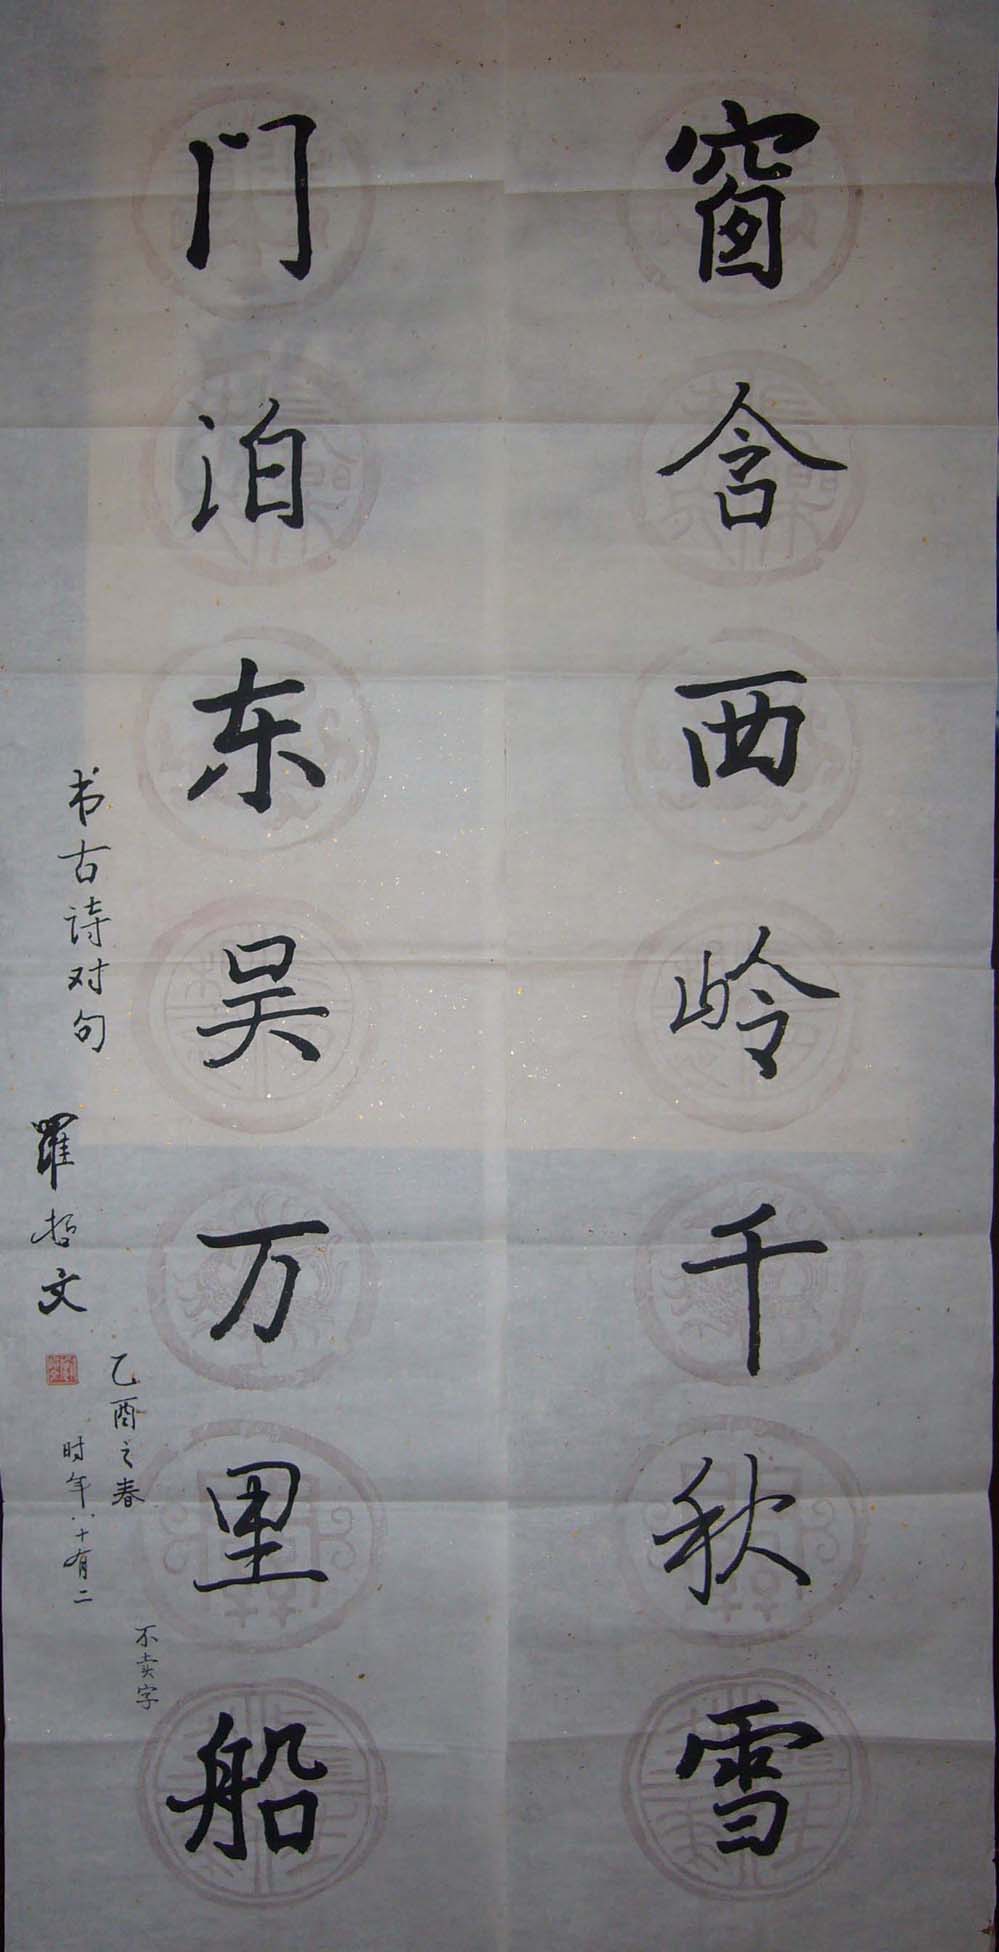 窗含西岭千秋雪
门泊东吴万里船
书古诗对句
羅哲文
乙酉之春
时年八十有二
不卖字